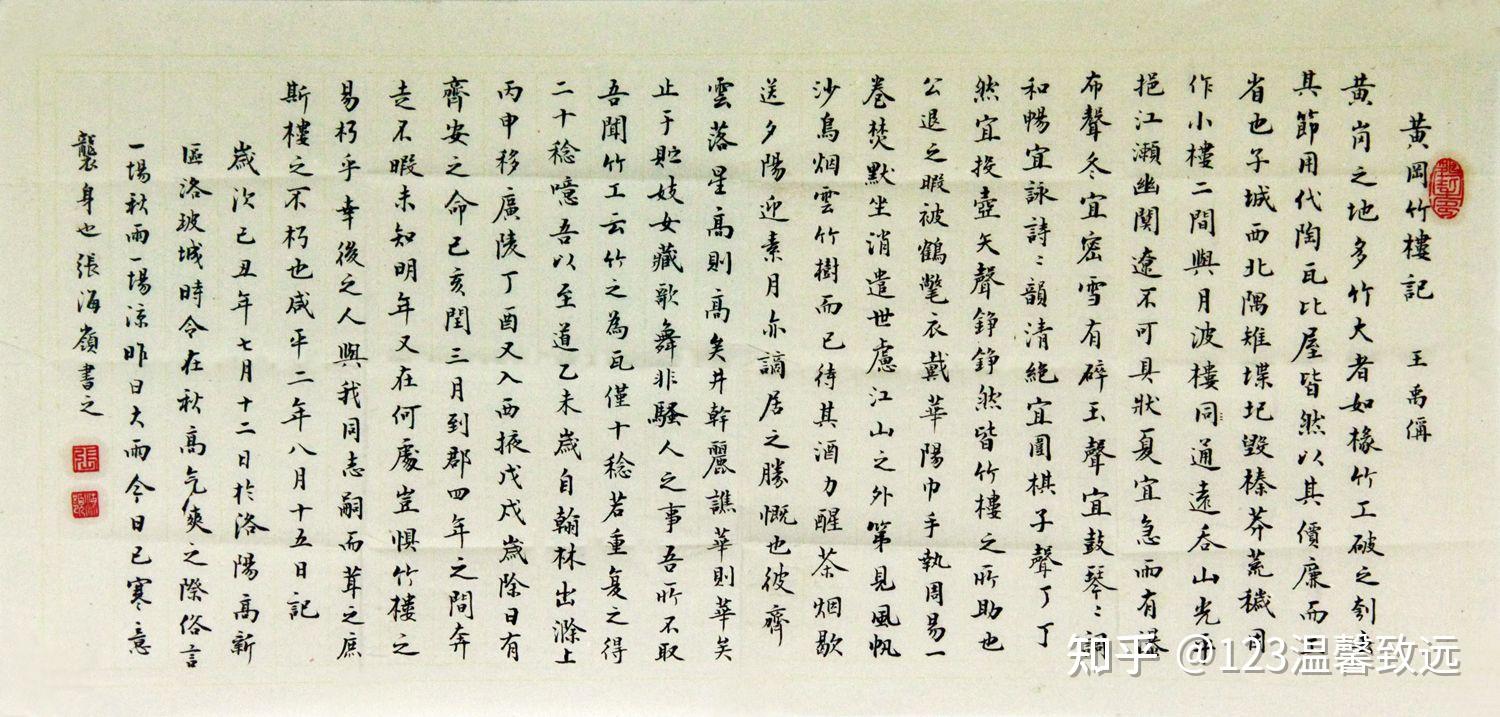 黄岡竹樓記 王禹偁
黄岗之地多竹大者如椽竹工破之刳去
其節用代陶瓦比屋皆然以其價廉而工
省也子城西北隅雉堞圮毀榛莽荒穢因
作小樓二間與月波樓同通遠吞山光平
挹江瀨幽闃遼不可具狀夏宜急雨有瀑
布聲冬宜密雪有碎玉聲宜鼓琴〻詞
和暢宜詠詩〻韻清絶宜圍棋子聲丁丁
然宜投壺矢聲錚錚然皆竹樓之所助也
公退之暇被鶴氅衣戴華陽巾手執周易一
卷焚默坐消遣世慮江山之外第見風帆
沙鳥烟雲竹樹而已待其酒力醒茶烟歇
送夕陽迎素月亦謫居之勝慨也彼齊
雲落星高則高矣井幹麗譙華則華矣
止于貯妓女藏歌舞非騷人之事吾所不取
吾聞竹工云竹之為瓦僅十稔若重复之得
二十稔噫吾以至道乙未歲自翰林出滁上
丙申移廣陵丁酉又入西掖戊戌歲除日有
齊安之命已亥閏三月到郡四年之間奔
走不暇未知明年又在何處豈惧竹樓之
易朽乎幸後之人與我同志嗣而葺之庶
斯樓之不朽也咸平二年八月十五日記
歲次己丑年七月十二日於洛陽高新
區洛玻城時令在秋高气爽之際俗言
一場秋雨一場涼昨日大雨今日已寒意
襲身也張海嶺書之
張
海嶺
知乎 @123温馨致远